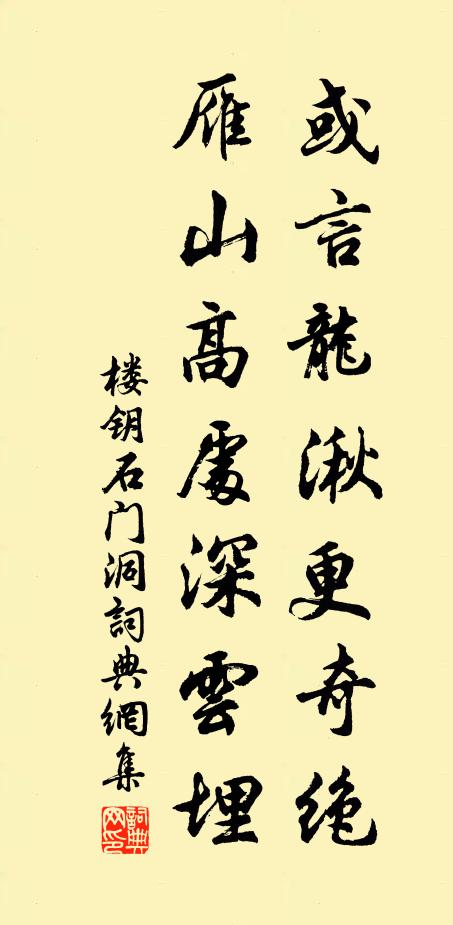 或言龍湫更奇绝
雁山高處深雲埋
楼钥石门洞詞典網集
詞典網印